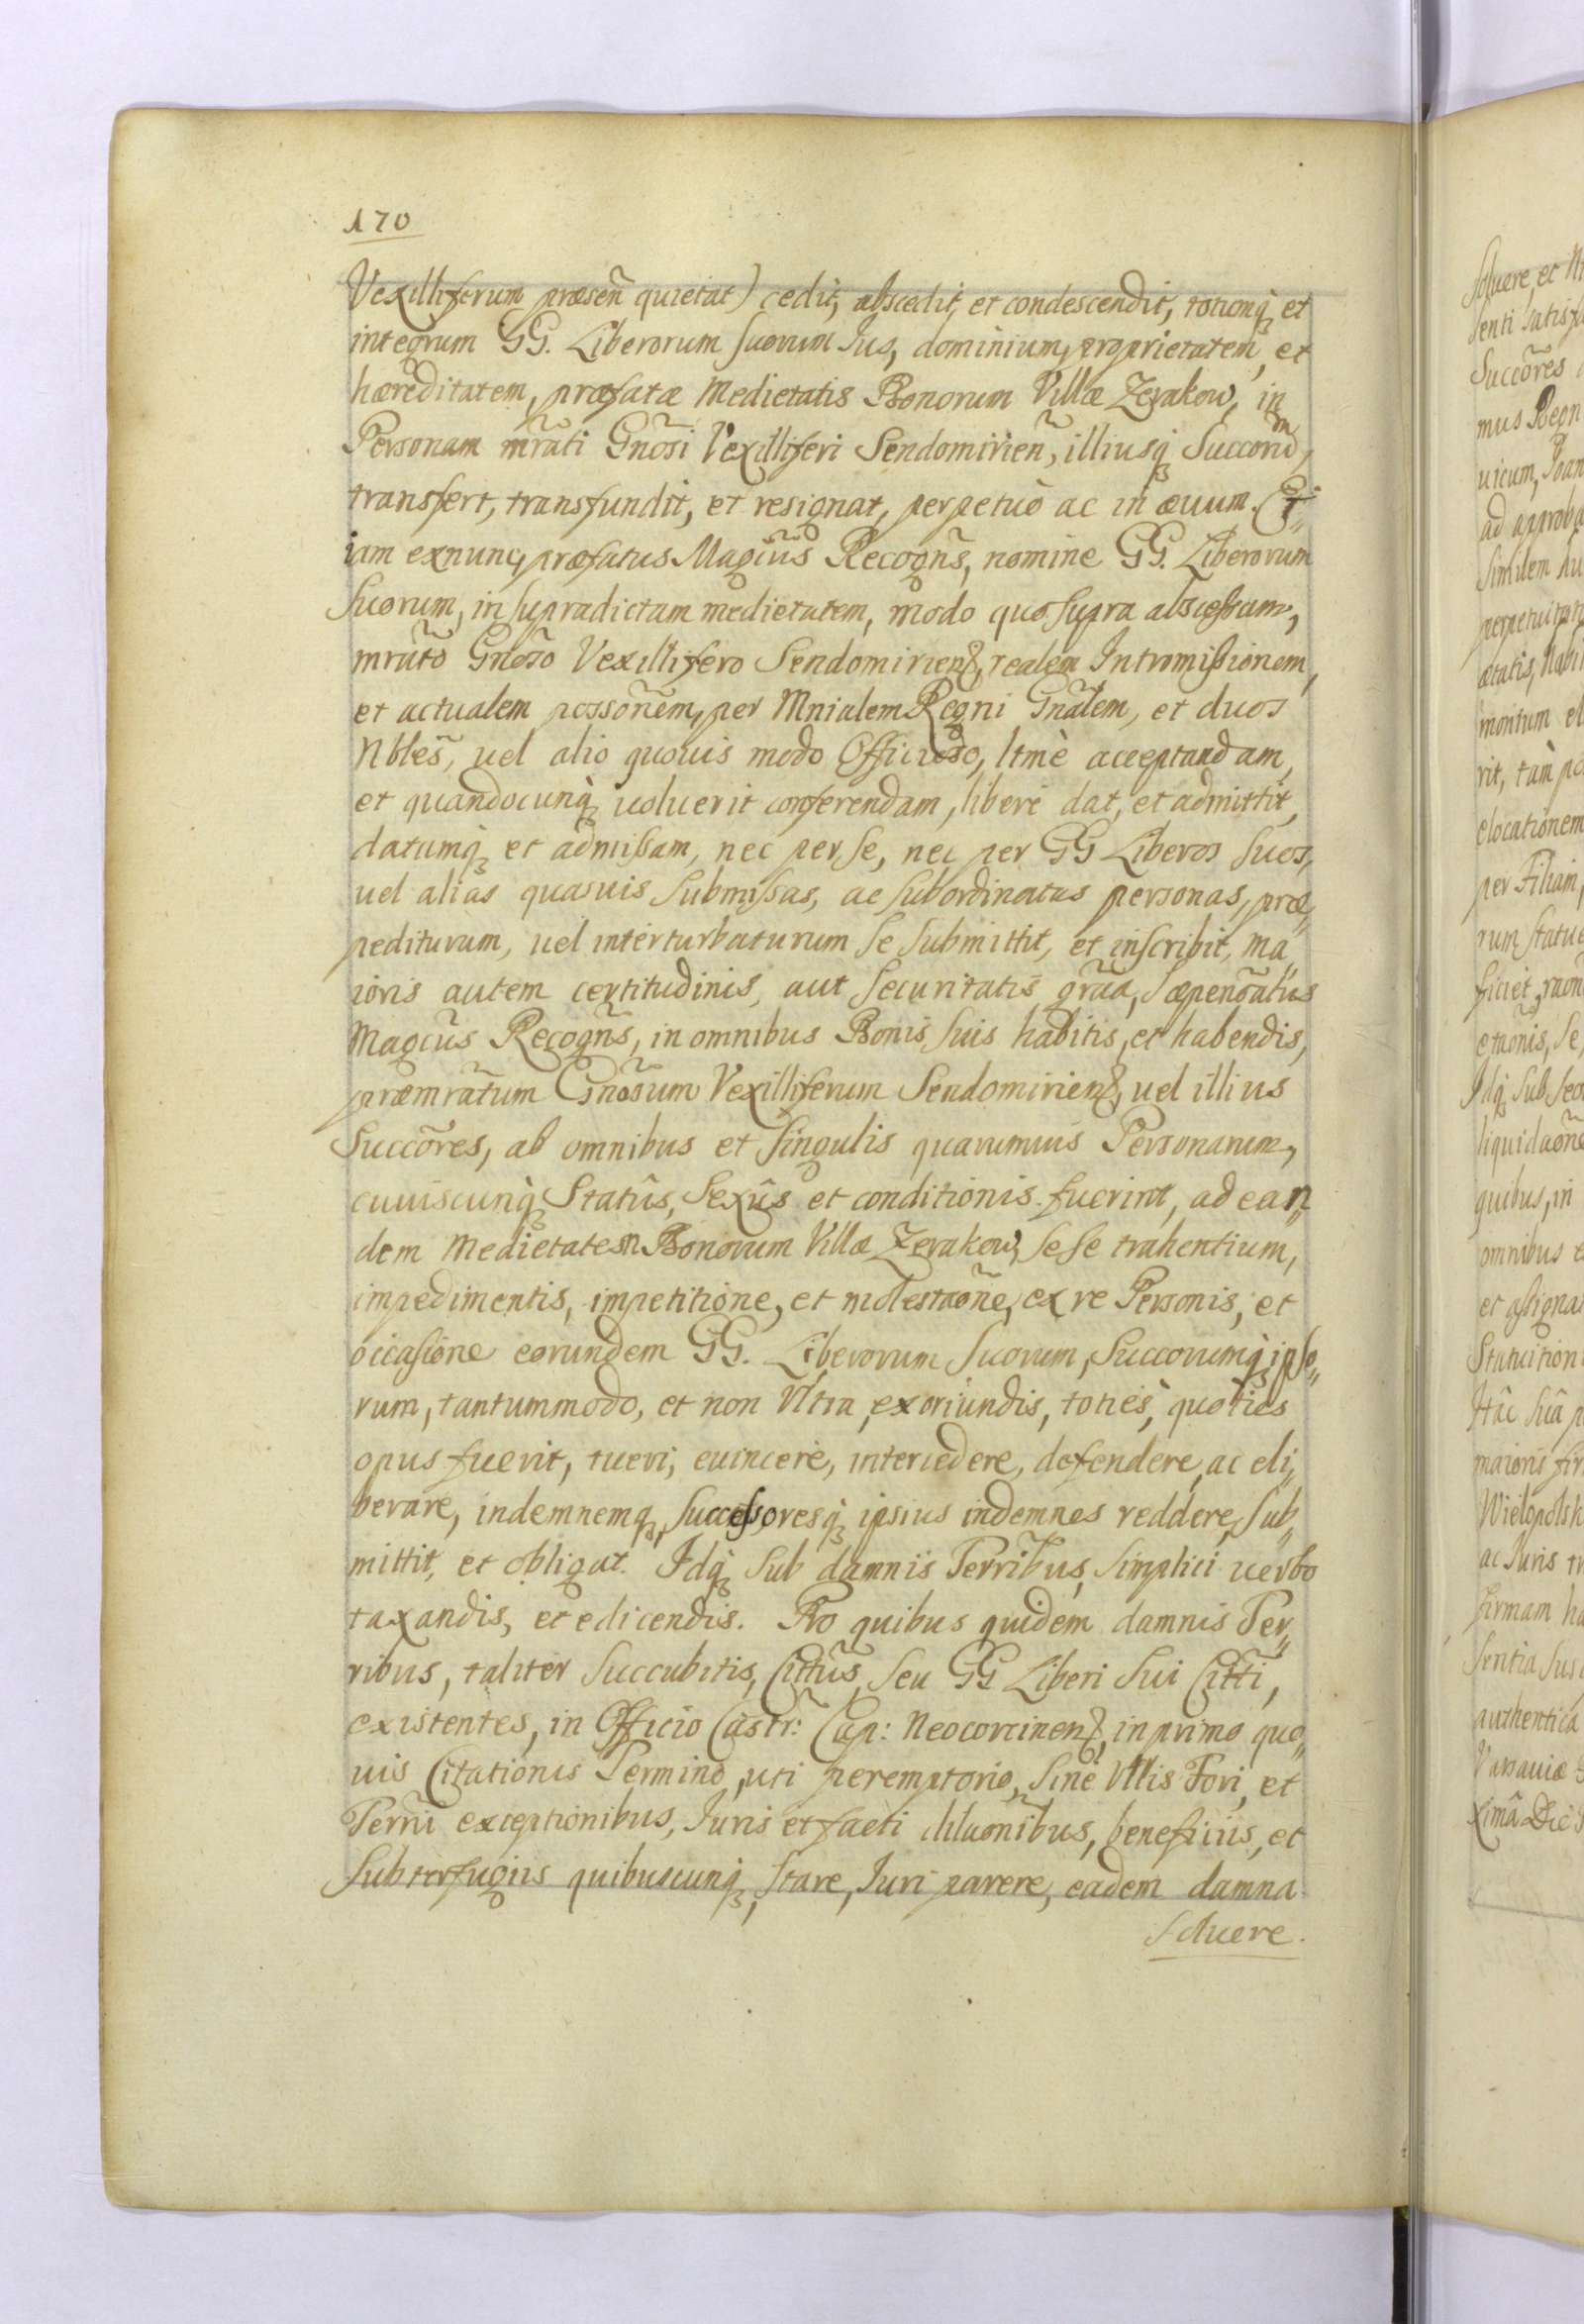 170
Vexilliferum præseñ quietat) cedit, abscedit, et condescendit, totumq́ et
integrum GG. Liberorum suorum Jus, dominium, proprietatem, et
hæreditatem, præfatæ Medietatis Bonorum Villæ Zerakow, in
Personam mrãti Gnõsi Vexilliferi Sendomirieñ, illiusq́ Succorũm,
transfert, transfundit, et resignat, perpetuò ac in æuum. Et"
iam exnunc, præfatus Magcũs Recogñs, nomine GG. Liberorum
Suorum, in supradictam medietatem, modo quo supra abscessam,
mrãto Gnõso Vexillifero Sendomirien, realem Intromissionem,
et actualem possoñem, per Mnialem Regni Gnãlem, et duos
Nbleš, uel alio quouis modo Officioso, ltmè acceptandam,
et quandocunq́ uoluerit conferendam, liberè dat, et admittit,
datumq́ et admissam, nec per se, nec per GG Liberos suos,
uel alias quasuis submissas, ac subordinatas personas, præ"
pediturum, uel interturbaturum se submittit, et inscribit, ma"
ioris autem certitudinis, aut securitatis grãa, sæpenoãtus
Magcũs Recogñs, in omnibus Bonis suis habitis, et habendis,
præmrãtum Gnõsum Vexilliferum Sendomirien, uel illius
Succõres, ab omnibus et singulis quarumuis Personarum,
cuuiscunq́ Statûs, Sexûs et conditionis fuerint, ad ean"
dem Medietatem Bonorum Villæ Zerakow, sese trahentium,
impedimentis, impetitione, et molestaõne, ex re Personis, et
occasione eorundem GG. Liberorum Suorum, Succorumq́ ipso"
rum, tantummodo, et non Vltra, exoriundis, toties, quoties
opus fuerit, tueri, euincere, intercedere, defendere, ac eli"
berare, indemnemq́, Successoresq́ ipsius indemnes reddere, sub"
mittit, et obligat. Idq́ sub damnis Terribus, simplici uerbo
taxandis, et edicendis. Pro quibus quidem damnis Ter"
ribus, taliter succubitis, Cittũs, seu GG Liberi Sui Citti,
existentes, in Officio Castr: Cap: Neocorcinen, in primo quo"
uis Citationis Termino, uti peremptorio, sine Vllis Fori, et
Termi exceptionibus, Juris et facti diluoñibus, beneficiis, et
subterfugiis quibuscunq́, stare, Juri parere, eadem damna
soluere.